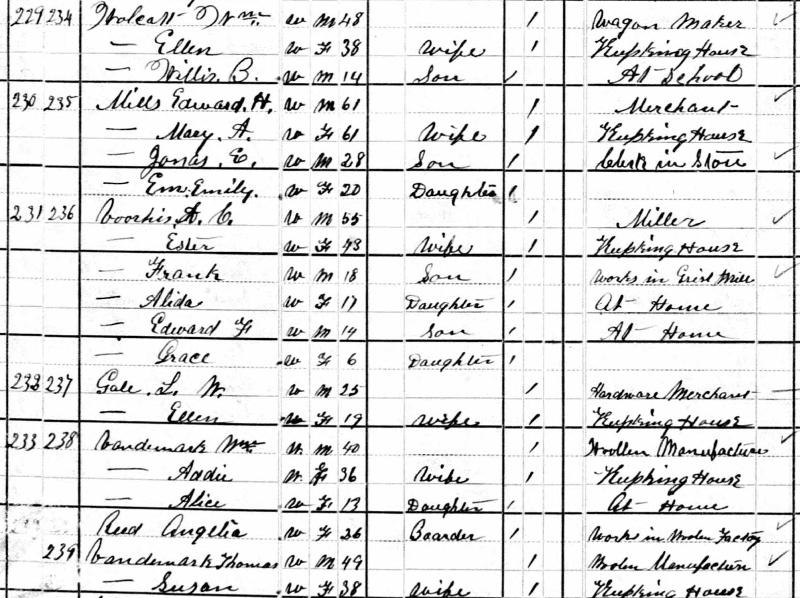 229 234 Wolcott Wm W M 48 / Wagon Maker ✓
— Ellen W F 38 Wife / Keeping House
— Willis B. W M 14 Son / At School
230 235 Mills Edward. H. W M 61 / Merchant ✓
— Mary. A. W F 61 Wife / Keeping House
— Jonas. E. W M 28 Son / Clerk in Store ✓
— Em. Emily. W F 20 Daughter /
231 236 Voorhis, A. C. W M 55 / Miller ✓
— Ester W F 43 Wife / Keeping House
— Frank W M 18 Son / Works in Grist Mill ✓
— Alida W F 17 Daughter / At Home
— Edward F W M 14 Son / At Home
— Grace W F 6 Daughter /
232 237 Gale. L. W. W M 25 / Hardware Merchant —
— Ellen W F 19 Wife / Keeping House
233 238 Vandemark Wm W. M 40 / Woollen Manufacturer ✓
— Addie W. F 36 Wife / Keeping House
— Alice W F 13 Daughter / At Home
Reed Angelia W F 26 Boarder / Works in Wolen Factory ✓
239 Vandemark Thomas W M 49 / Wolen Manufacturer ✓
— Susan W F 38 Wife / Keeping House